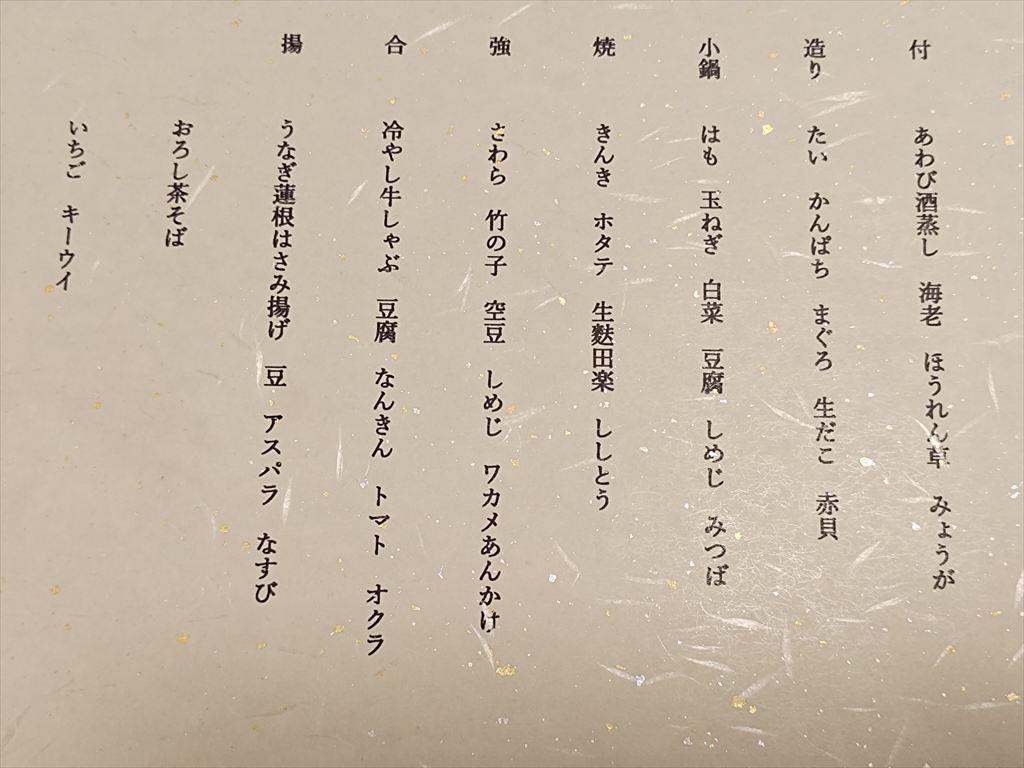 付　あわび酒蒸し　海老　ほうれん草　みょうが
造り　たい　かんぱち　まぐろ　生だこ　赤貝
小鍋　はも　玉ねぎ　白菜　豆腐　しめじ　みつば
焼　きんき　ホタテ　生麩田楽　ししとう
強　さわら　竹の子　空豆　しめじ　ワカメあんかけ
合　冷やし牛しゃぶ　豆腐　なんきん　トマト　オクラ
揚　うなぎ蓮根はさみ揚げ　豆　アスパラ　なすび
おろし茶そば
いちご　キーウイ